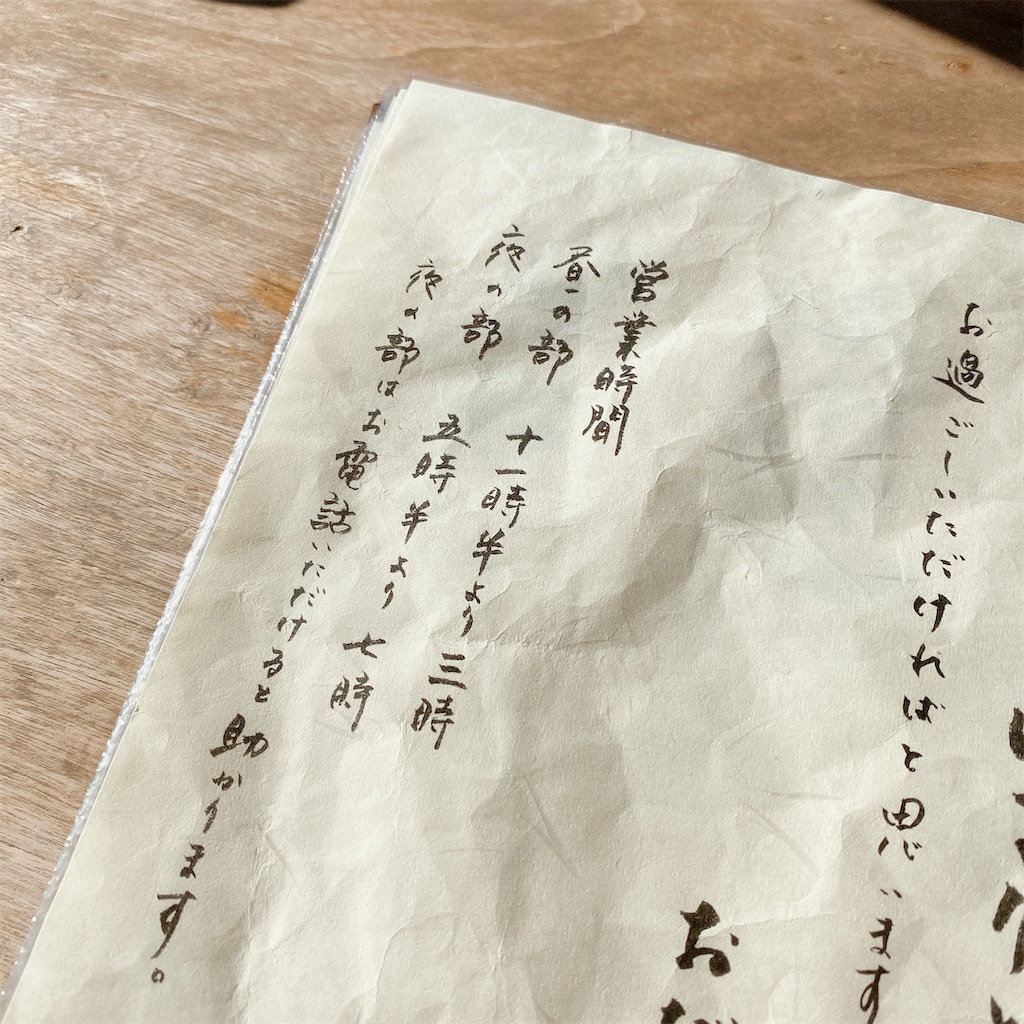 お過ごしいただければと思います
営業時間
昼の部 十一時半より三時
夜の部 五時半より七時
夜の部はお電話いただけると助かります。